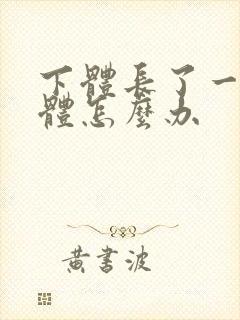 下體長了一
體怎麼办
黄書波